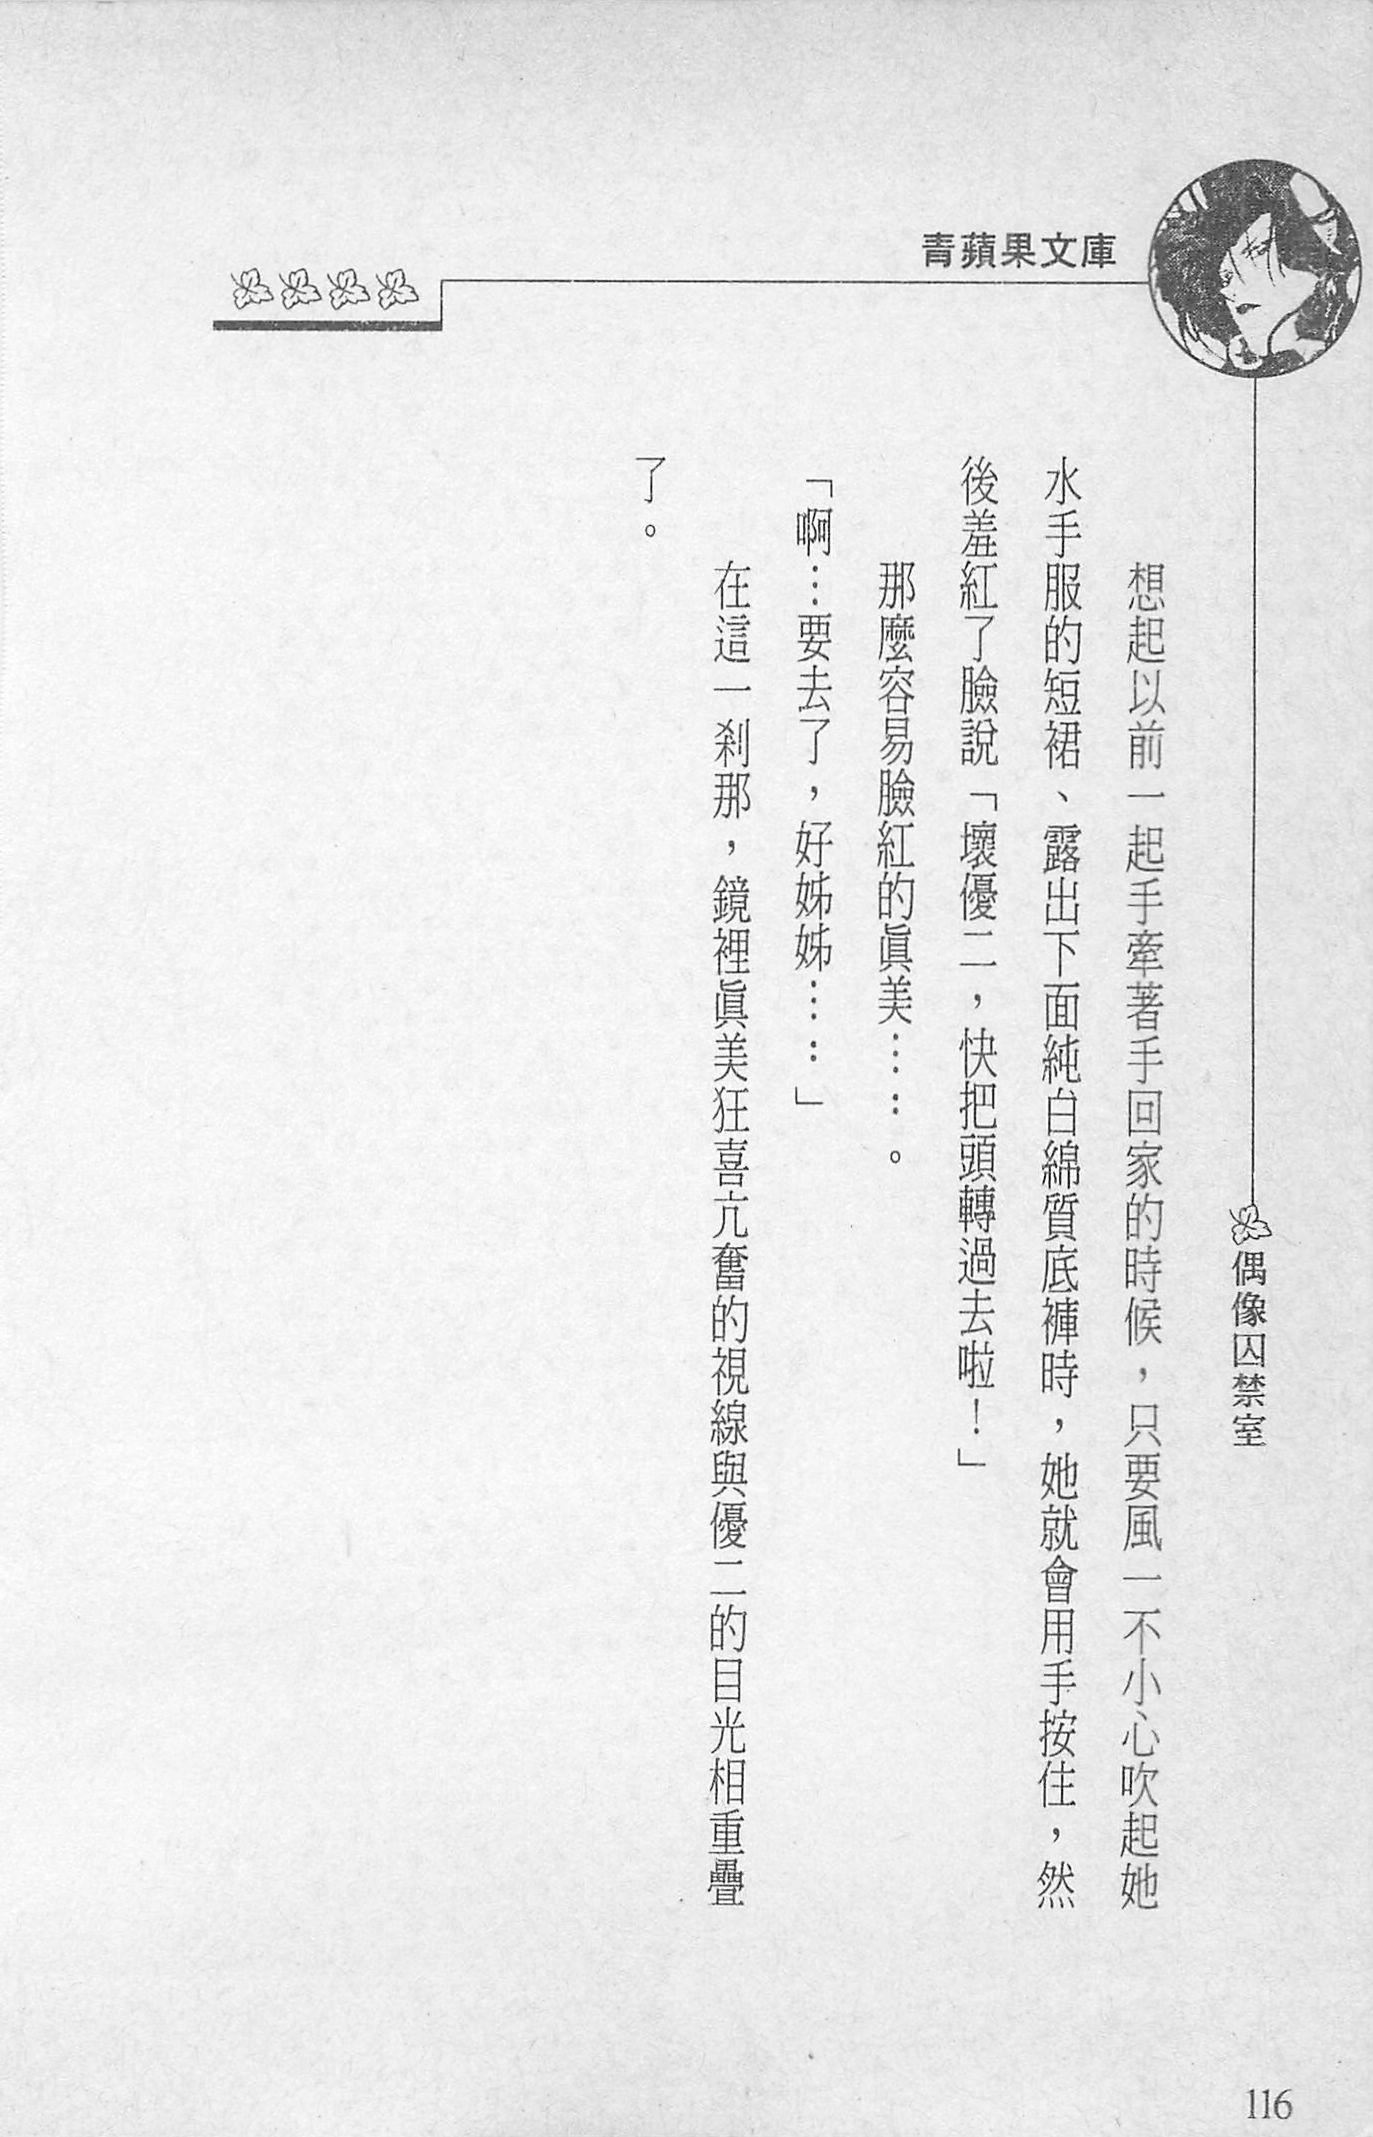 青蘋果文庫
偶像囚禁室
想起以前一起手牽著手回家的時候，只要風一不小心吹起她
水手服的短裙、露出下面純白綿質底褲時，她就會用手按住，然
後羞紅了臉說「壞優二，快把頭轉過去啦！」
那麼容易臉紅的眞美……。
「啊…要去了，好姊姊……」
在這一剎那，鏡裡眞美狂喜亢奮的視線與優二的目光相重疊
了。
116